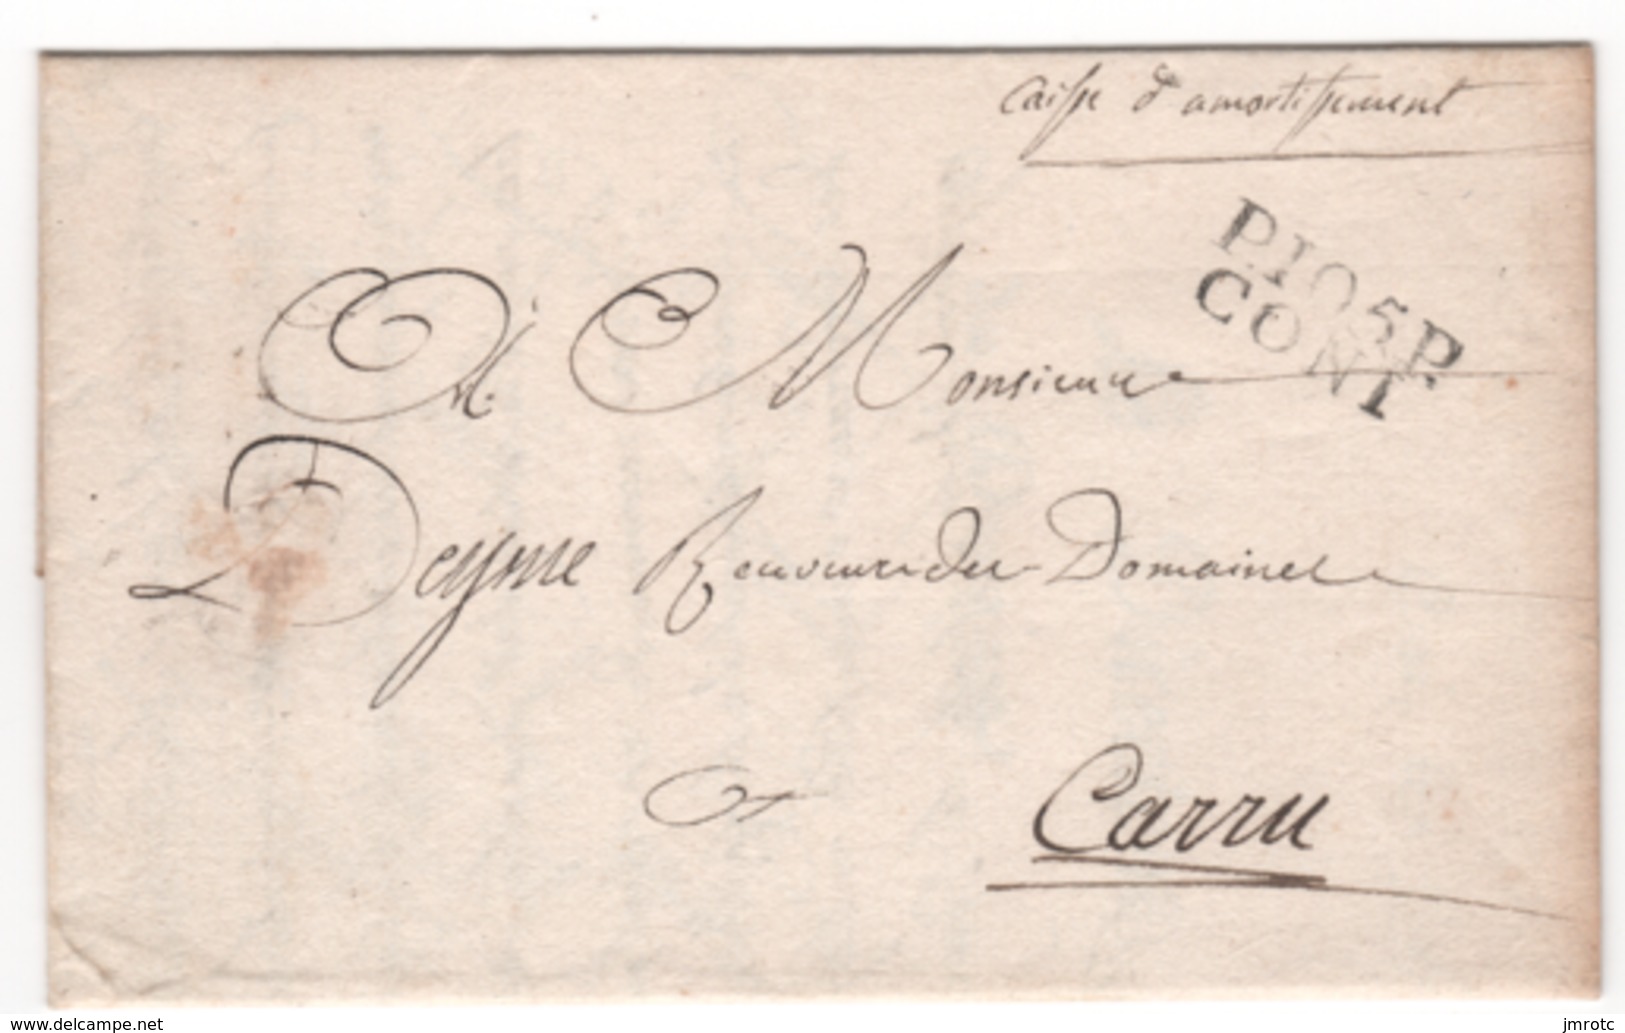 Caisse d'amortissement
P.105.P.
CONI
A Monsieur
Monsieur
Deyme Receveur des Domaines
a Carru
www.delcampe.net
jmrotc